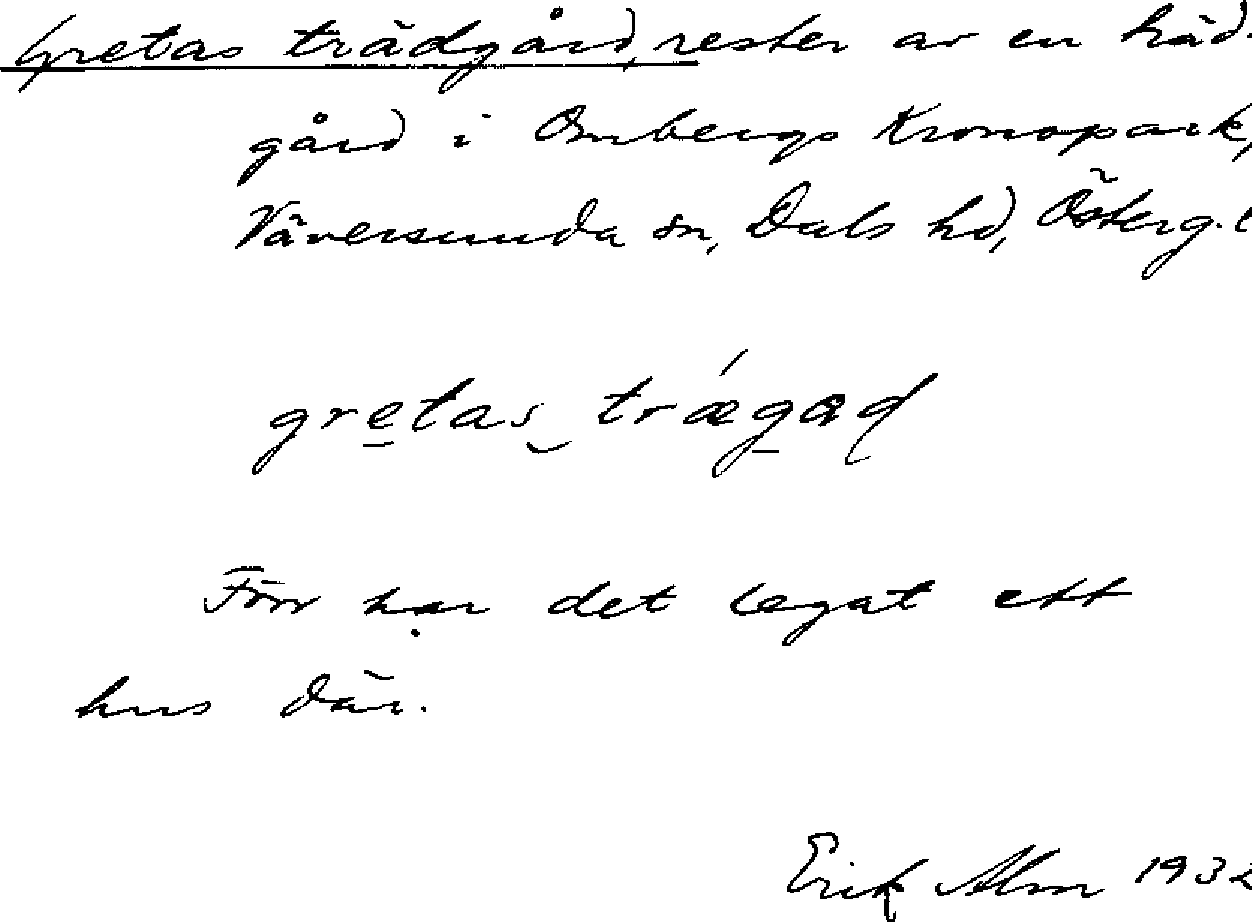 Gretas trädgård, rester av en träd-
gård i Ombergs Kronopark,
Väversunda sn, Dals hd, Österg. l
gretas trǽgaḍ
Förr har det legat ett
hus där.
Erik Alm 1932